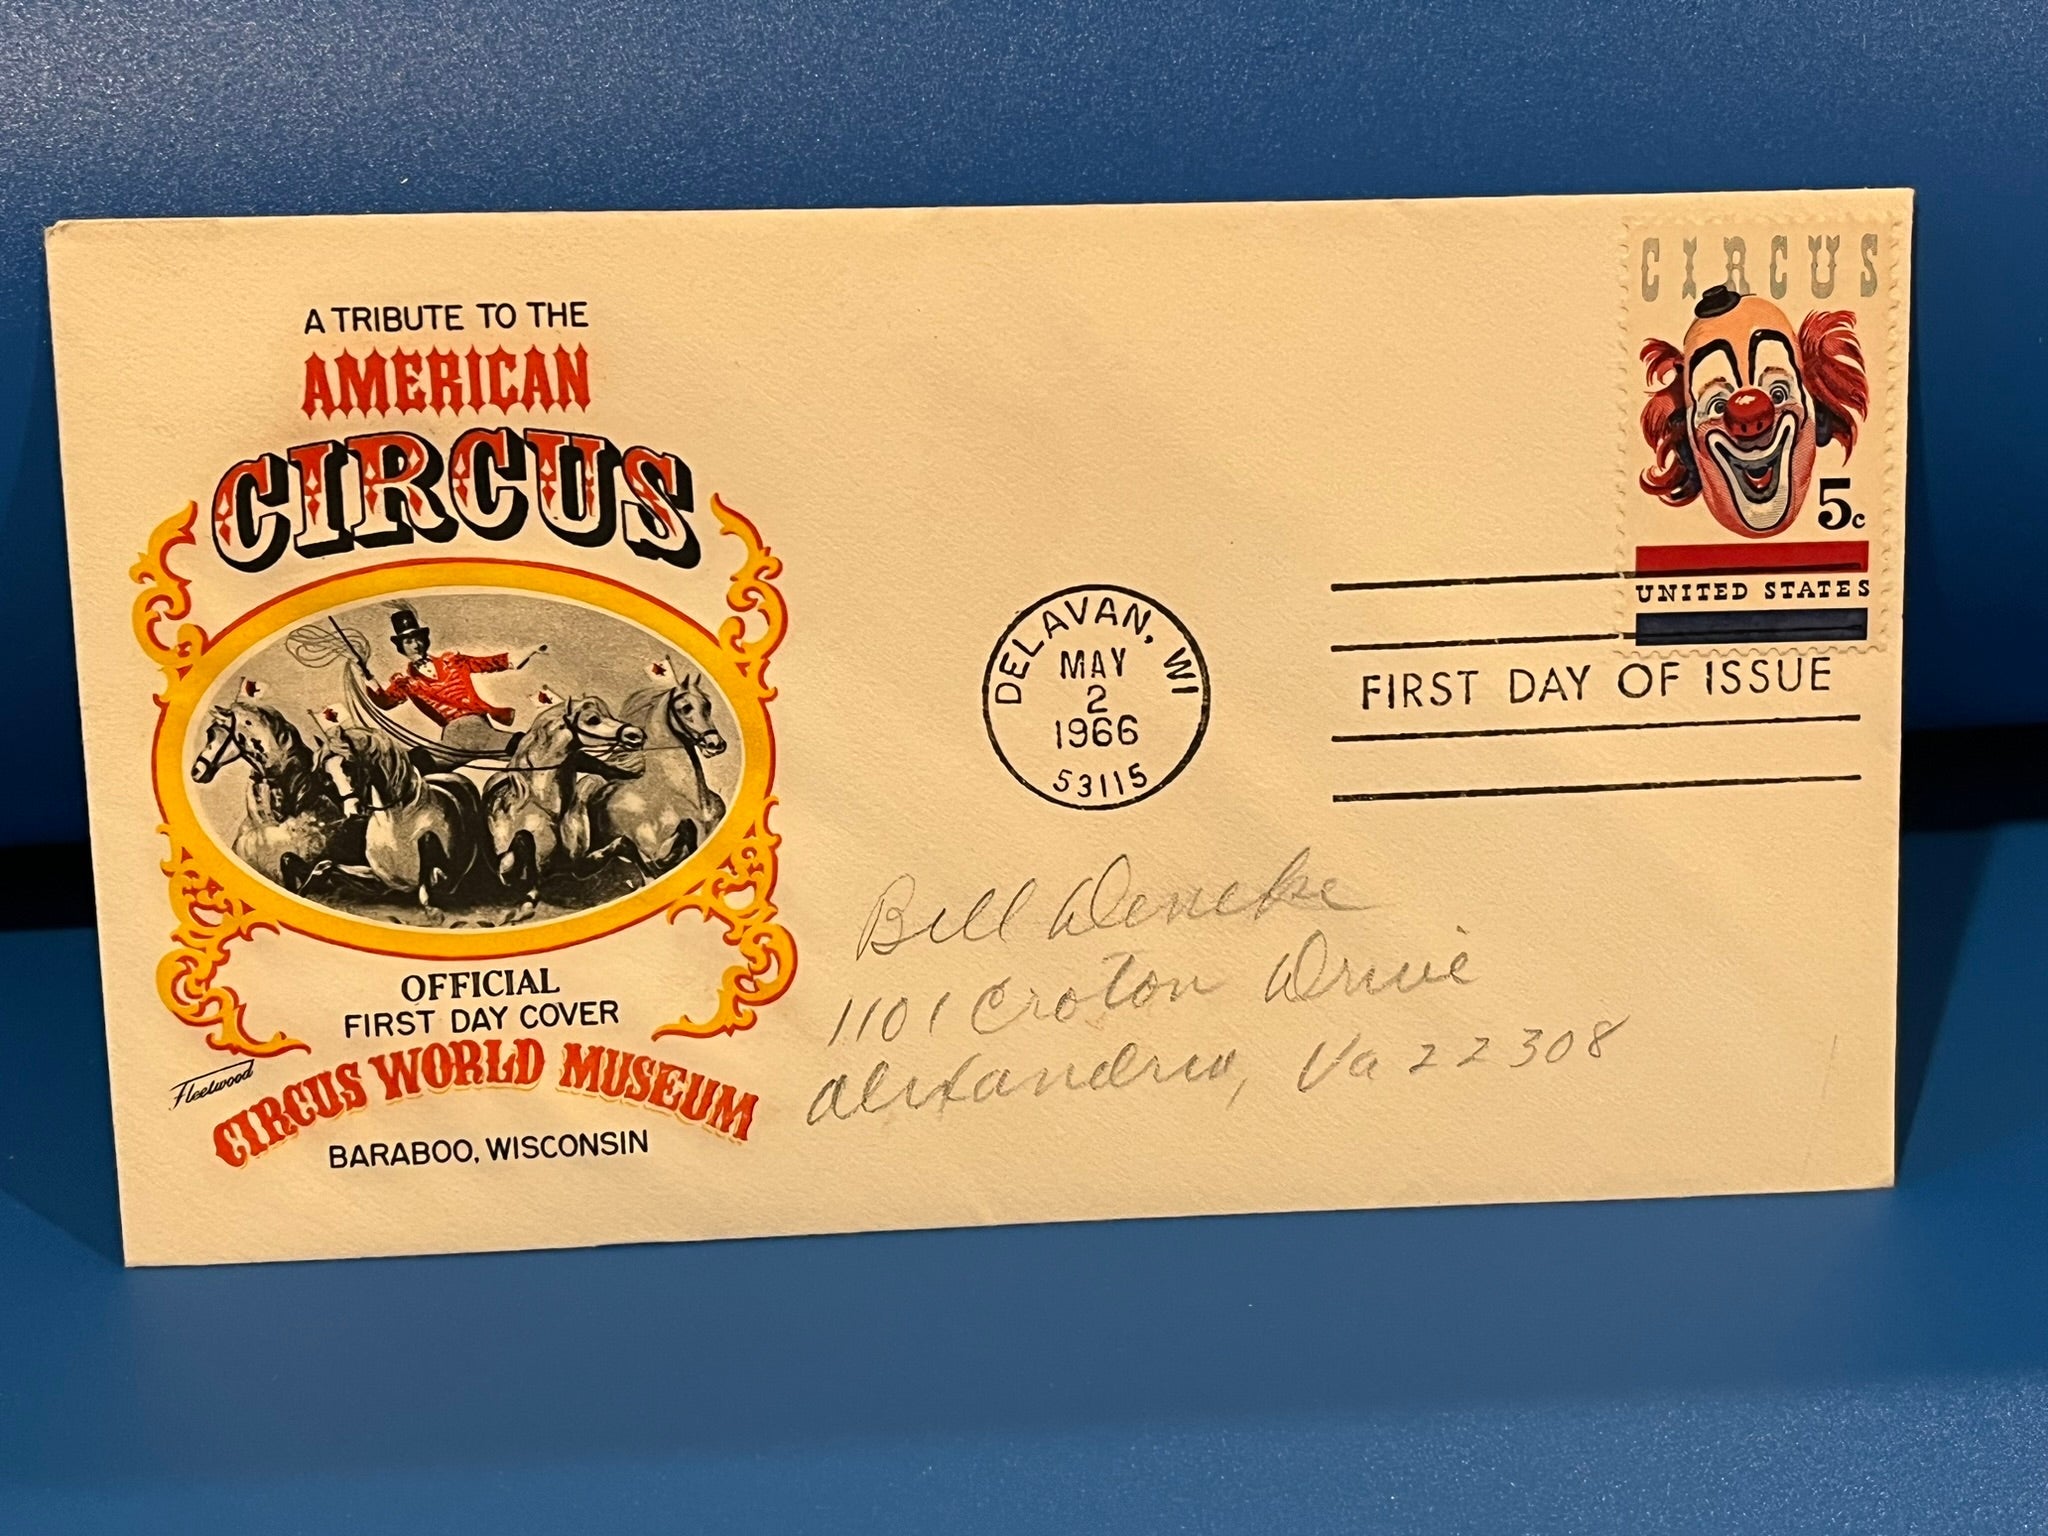 A TRIBUTE TO THE
AMERICAN
CIRCUS
OFFICIAL
FIRST DAY COVER
Fleetwood
CIRCUS WORLD MUSEUM
BARABOO, WISCONSIN
DELAVAN, WI
MAY
2
1966
53115
CIRCUS
5c
UNITED STATES
FIRST DAY OF ISSUE
Bill Deneke
1101 Croton Drive
Alexandria, Va 22308